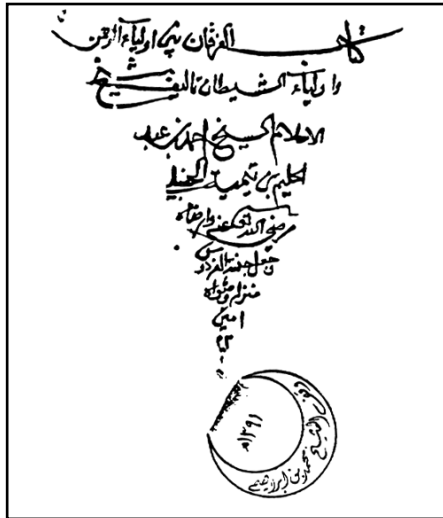 كتاب الفرقان بين اولياء الرحمن
واولياء الشيطان تاليف الشيخ
الامام الشيخ احمد بن عبد
الحليم بن تيمية الحنبلي
رضي الله تعالى عنه وارضاه
وجعل جنة الفردوس
منزله ومثواه
امين
١٣٩١هـ
الشيخ محمد بن ابراهيم